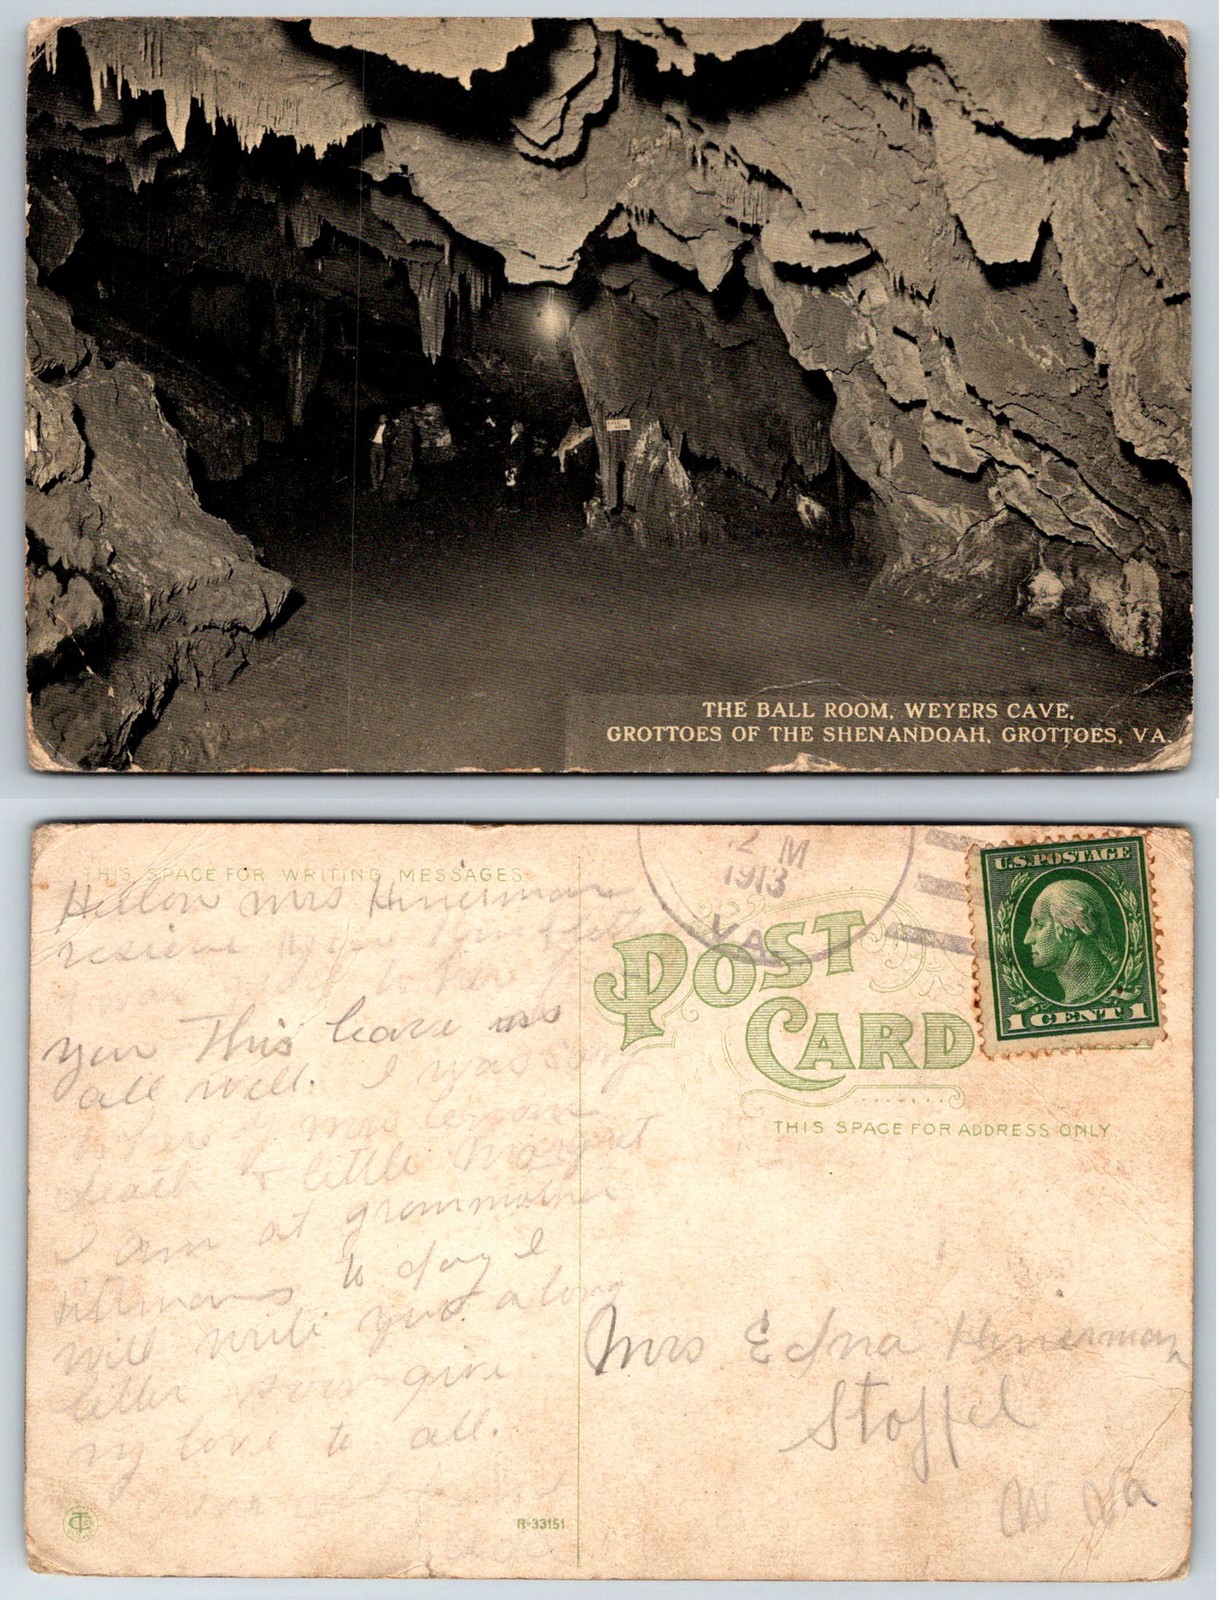 THE BALL ROOM, WEYERS CAVE,
GROTTOES OF THE SHENANDOAH, GROTTOES, VA.
THIS SPACE FOR WRITING MESSAGES
Hellow mrs Hinerman
resieve your
I was glad to hear
you This leave us
all well. I was sorry
to here of mrs
death & little Margret
I am at grammother
to day I
will write you a long
letter soon give
my love to all.
R-33151
M
1913
VA
U.S. POSTAGE
1 CENT 1
POST
CARD
THIS SPACE FOR ADDRESS ONLY
Mrs Edna Hinerman
Stoffel
W Va